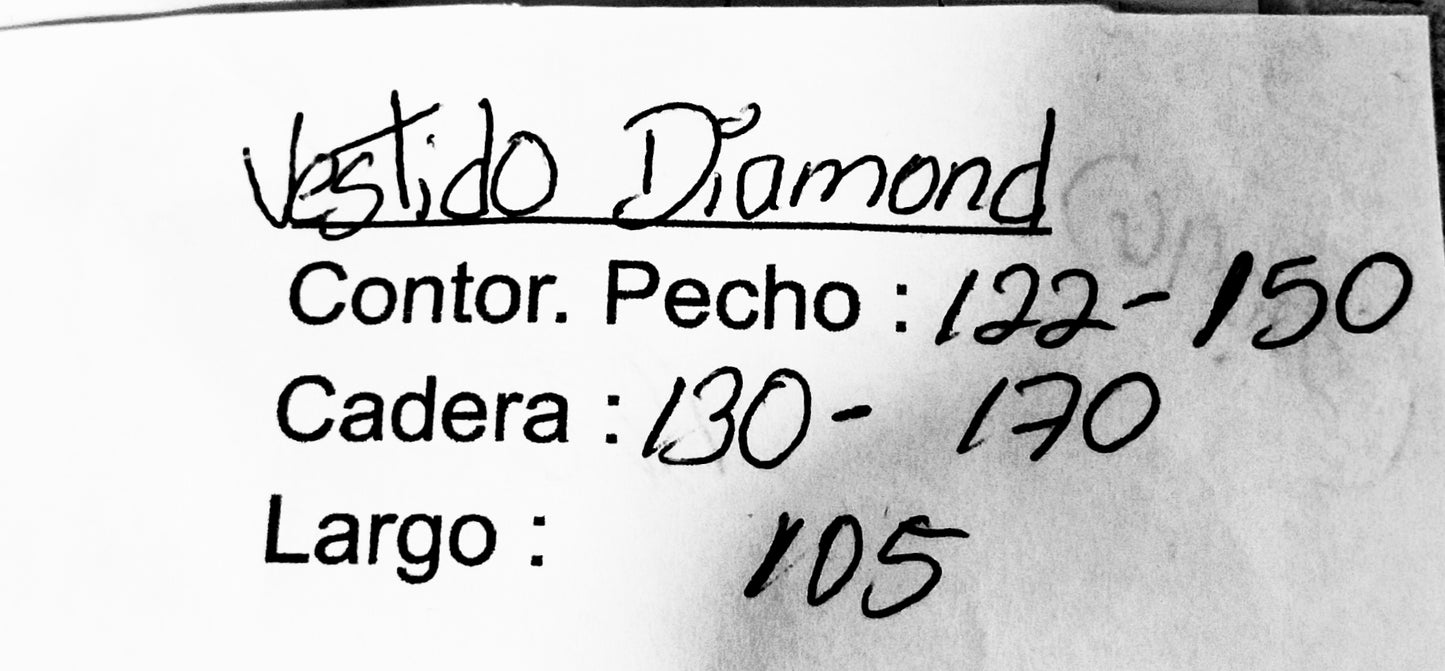 Vestido Diamond
Contor. Pecho : 122 - 150
Cadera : 130 - 170
Largo : 105